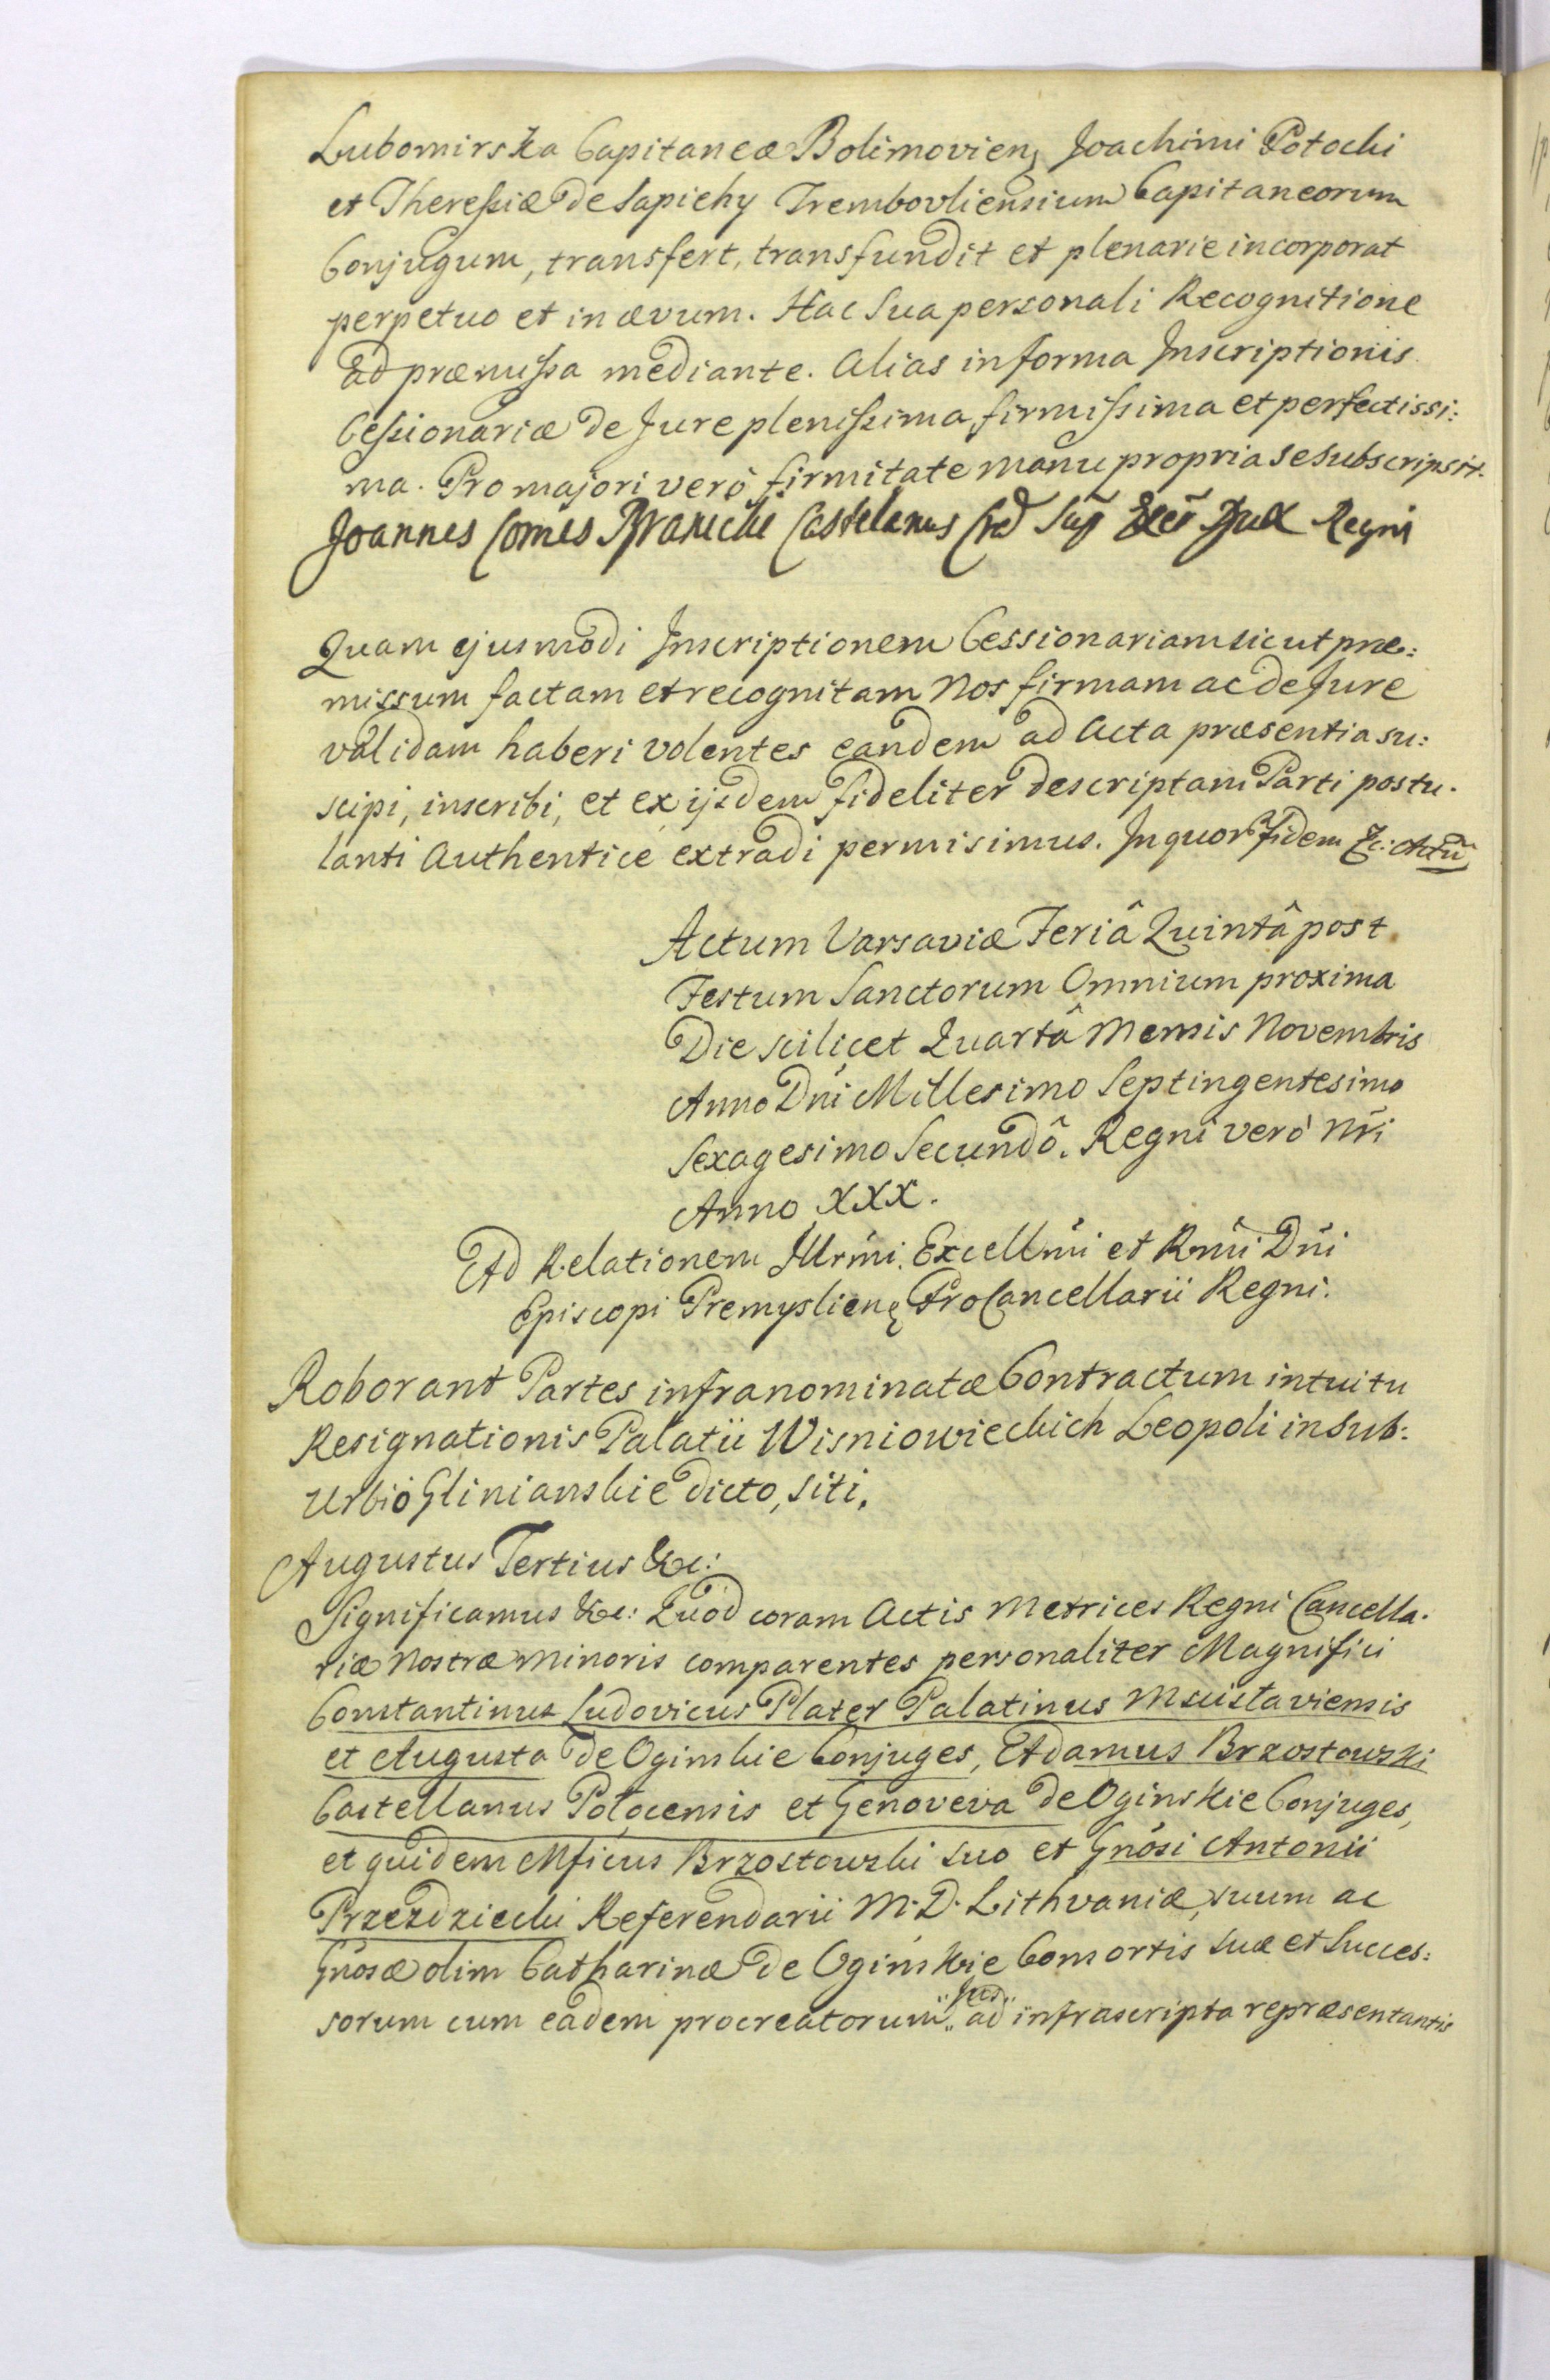 Lubomirska Capitaneæ Bolimovien, Joachimi Potocki
et Theressiæ de Sapiehy Trembovliensium Capitaneorum
Conjugum, transfert, transfundit et plenarie incorporat
perpetuo et in ævum. Hac Sua personali Recognitione
ad præmissa mediante. Alias in forma Inscriptionis
Cessionariæ de Jure plenissima, firmissima et perfectissi:
ma. Pro majori verò firmitate manu propria se subscripsit.
Joannes Comes Branicki Castelanus Suṕ Dux Regni
Quam ejusmodi Inscriptionem Cessionariam sicut præ:
missum factam et recognitam Nos firmam ac de Jure
validam haberi volentes eandem ad Acta præsentia su:
scipi, inscribi, et ex ijsdem fideliter descriptam Parti postu.
lanti Authentice extradi permisimus. In quor fidem &c: Actū
Actum Varsaviæ Feriâ Quintâ post
Festum Sanctorum Omnium proxima
Die scilicet Quartâ Mensis Novembris
Anno Dñi Millesimo Septingentesimo
Sexagesimo Secundô. Regni verò Nr̃i
Anno XXX.
Ad Relationem Illrm̃i. Excellm̃i et Rm̃i Dñi
Episcopi Premyslien ProCancellarii Regni.
Roborant Partes infranominatæ Contractum intuitu
Resignationis Palatii Wisniowieckich Leopoli in Sub:
urbio Glinianskie dicto, siti.
Augustus Tertius &c:
Significamus &c: Quod coram Actis Metrices Regni Cancella.
riæ Nostræ Minoris comparentes personaliter Magnifici
Constantinus Ludovicus Plater Palatinus Mscistaviensis
et Augusta de Oginskie Conjuges, Adamus Brzostowski
Castellanus Polocensis et Genoveva de Oginskie Conjuges,
et quidem Mficus Brzostowski suo et Gnosi Antonii
Przezdziecki Referendarii M. D. Lithvaniæ, suum ac
Gnosæ olim Catharinæ de Oginskie Consortis suæ et Succes:
sorum cum eadem procreatorum Jus ad infrascripta repræsentantis